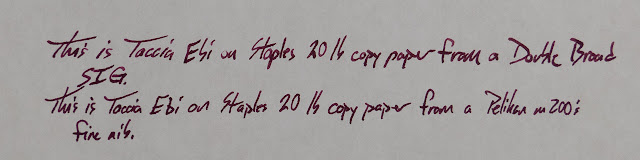 This is Taccia Ebi on Staples 20 lb copy paper from a Double Broad
SIG.
This is Taccia Ebi on Staples 20 lb copy paper from a Pelikan m200's
fine nib.